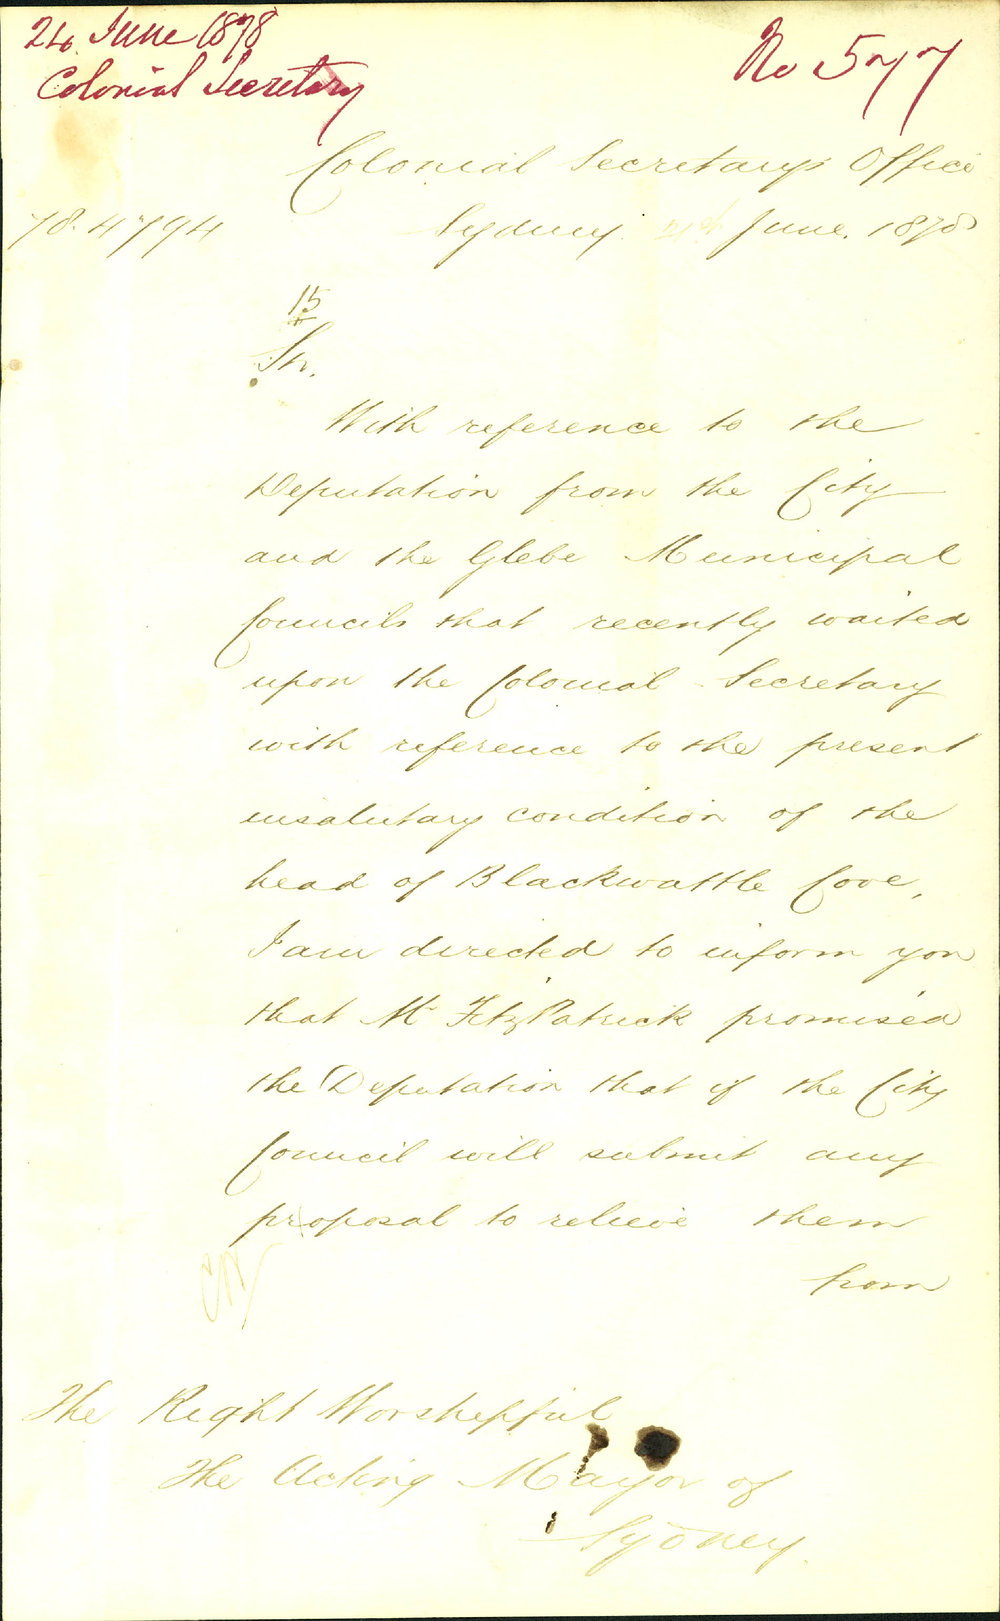 24 June 1878
Colonial Secretary
No 577
Colonial Secretary's Office
78.4794
Sydney. 21st June. 1878
15
Sir.
With reference to the
Deputation from the City
and the Glebe Municipal
Councils that recently waited
upon the Colonial Secretary
with reference to the present
insalutary condition of the
head of Blackwattle Cove,
I am directed to inform you
that Mr FitzPatrick promised
the Deputation that if the City
Council will submit any
proposal to relieve them
from
The Right Worshipful
The Acting Mayor of
Sydney.